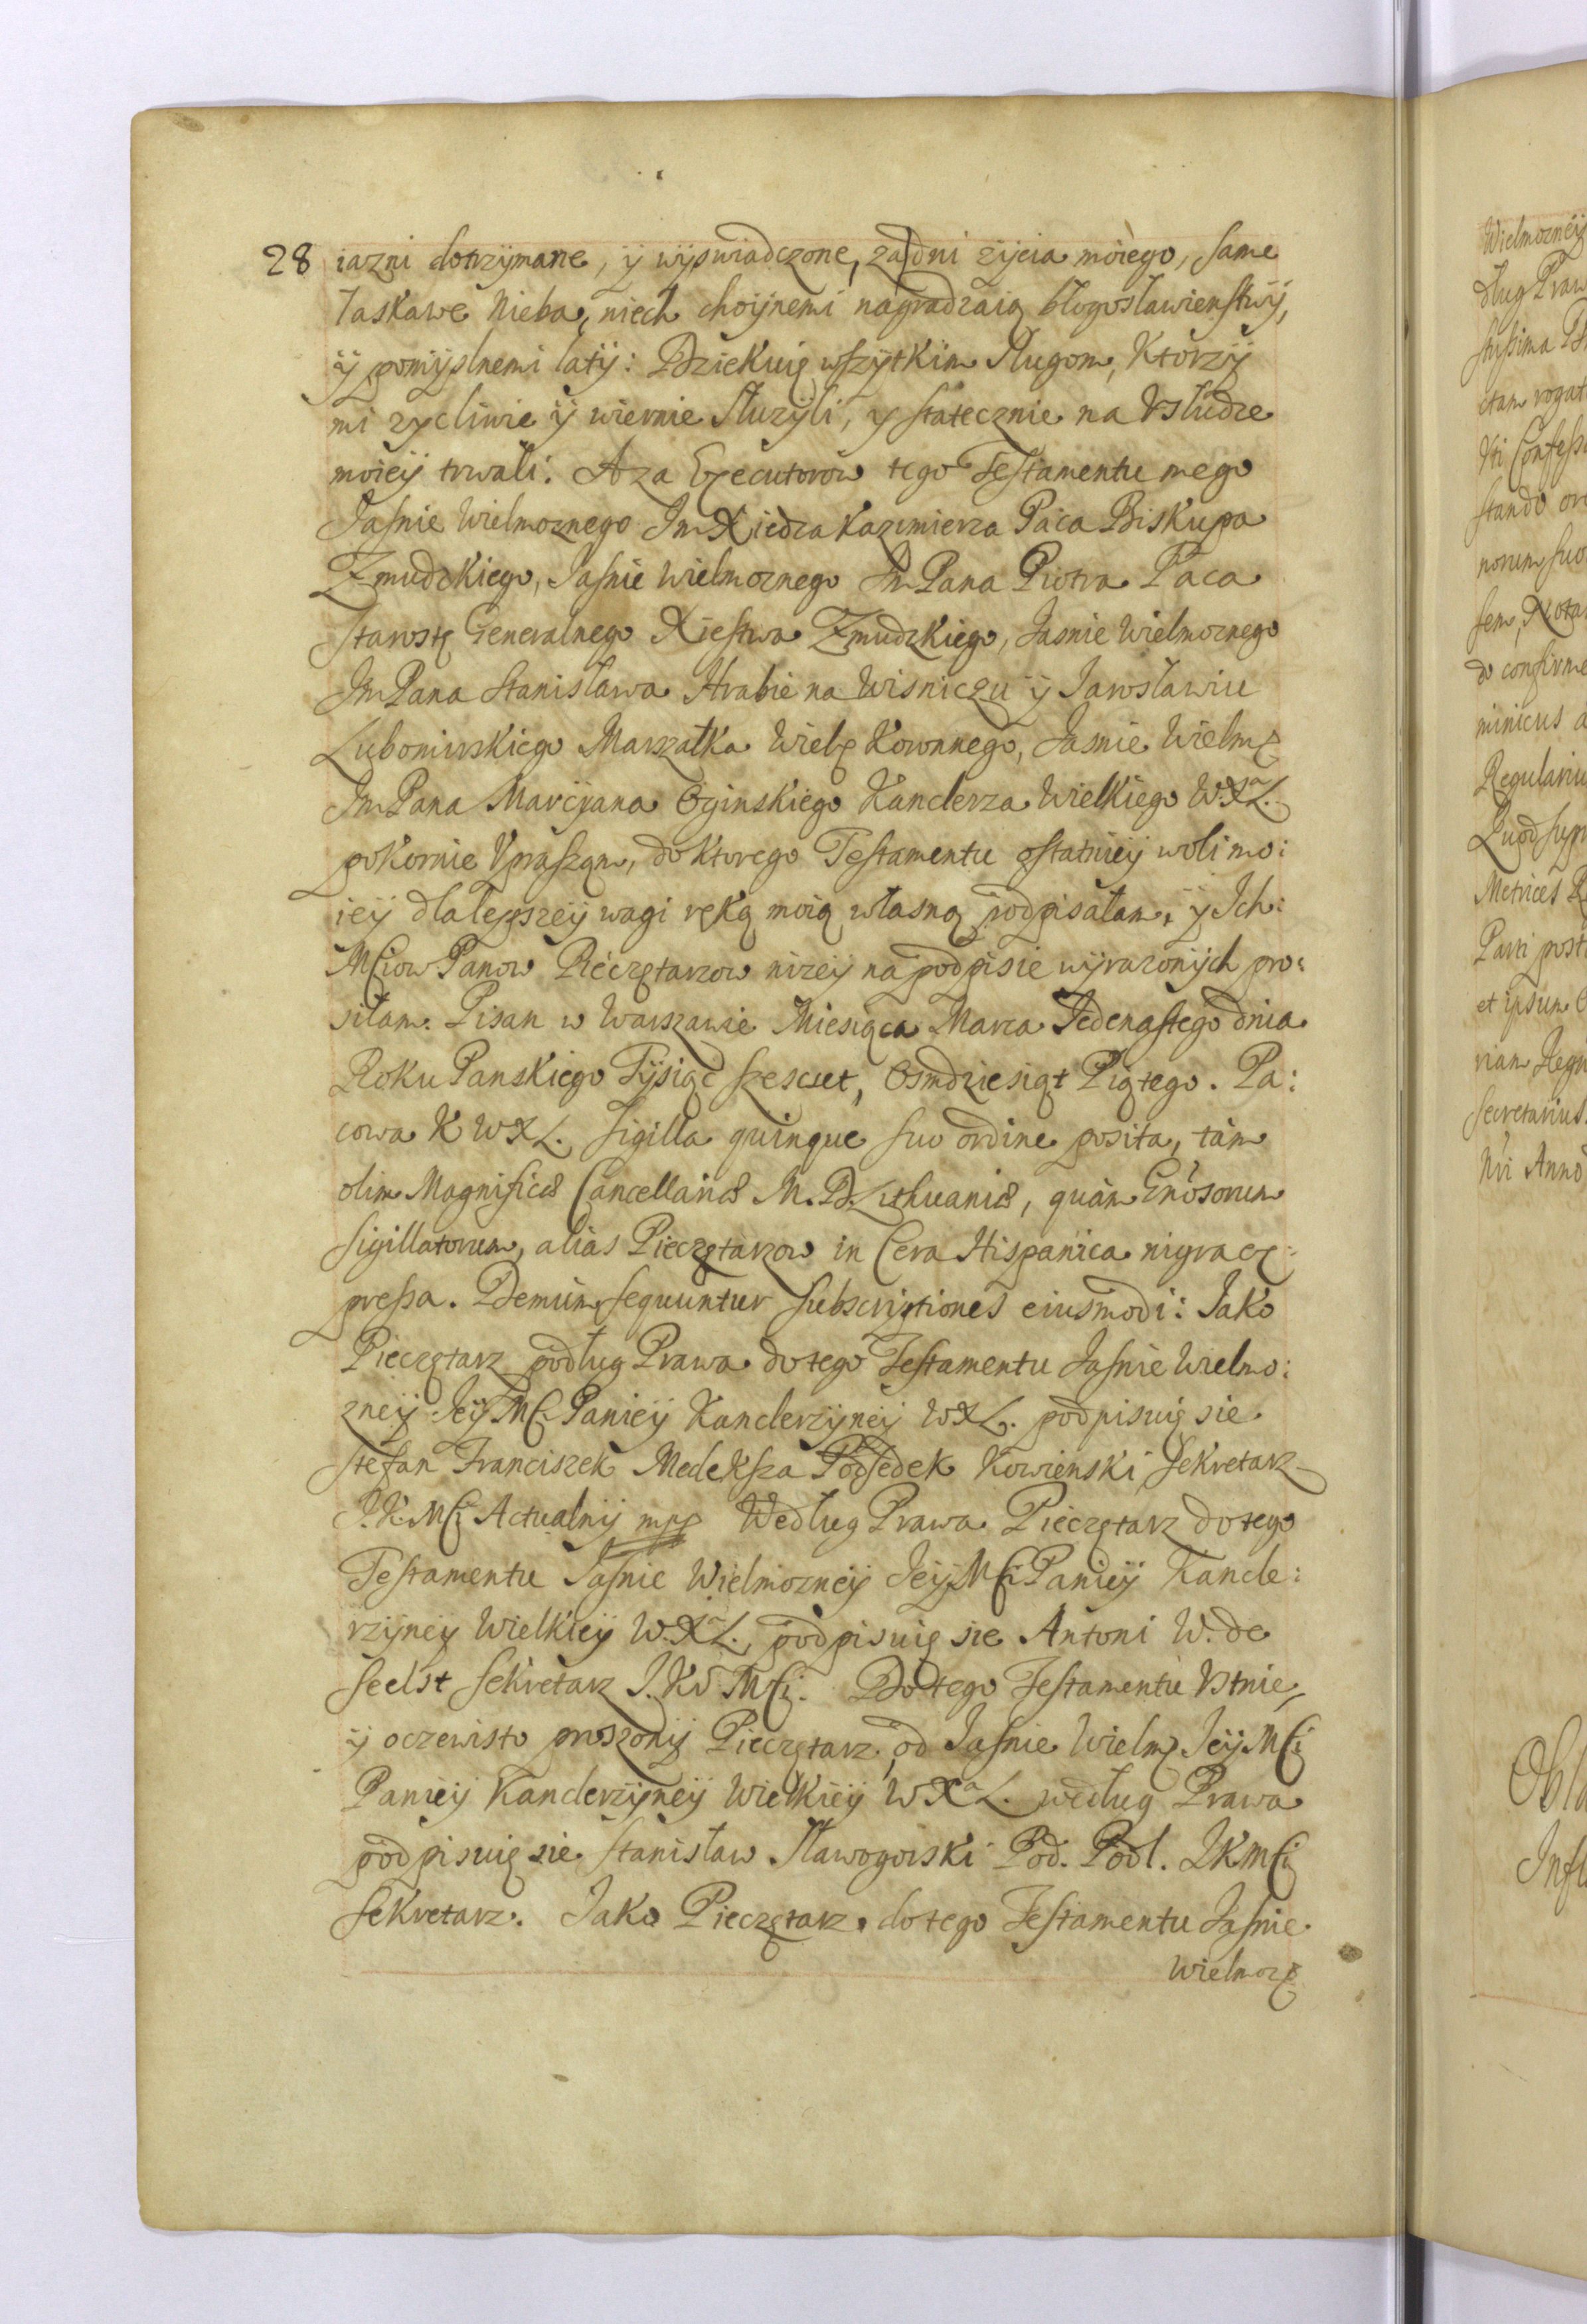 28 iazni dotrzymane, ÿ wÿswiadczone, za dni zÿcia moiego, same
łaskawe Nieba, niech choÿnemi nagradzaią błogosławienstwÿ,
ÿ pomÿslnemi latÿ: Dziekuię wszÿtkim sługom, Ktorzÿ
mi zycliwie ÿ wiernie słuzÿli, y statecznie na Vsłudze
moieÿ trwali: A za Executorow tego Testamentu mego
Jasnie Wielmoznego Jm Xiedza Kazimierza Paca Biskupa
Zmudzkiego, Jasnie Wielmoznego Jm Pana Piotra Paca
Starostę Generalnego Xiestwa Zmudzkiego, Jasnie Wielmoznego
Jm Pana Stanisława Hrabie na Wisniczu ÿ Jarosławiu
Lubomirskiego Marszałka Wielg Koronnego, Jasnie Wielmg
Jm Pana Marcÿana Oginskiego Kanclerza Wielkiego W.XaL.
pokornie Vpraszam, do Ktorego Testamentu ostatnieÿ woli mo:
ieÿ dla lepszeÿ wagi ręką moią własną podpisałam, ÿ Ich:
Mciow Panow Pieczętarzow nizeÿ na podpisie wÿrazonÿch pro:
siłam. Pisan w Warszawie Miesiąca Marca Jedenastego dnia
Roku Panskiego Tÿsiąc szescset, Osmdziesiąt Piątego. Pa:
cowa K W X L. Sigilla quinque suo ordine posita, tàm
olim Magnificæ Cancellariæ M. D. Lithuaniæ, quàm Gnosorum
Sigillatorum, aliàs Pieczętarzow in Cera Hispanica nigra ex:
pressa. Demùm sequuntur subscriptiones eiusmodi: Jako
Pieczętarz podług Prawa do tego Testamentu Jasnie Wielmo:
zneÿ Jeÿ Mci Panieÿ Kanclerzÿneÿ WXL. podpisuię sie
Stefan Franciszek Medeksza Podsedek Kowienski, Sekretarz
J.K.Mci Actualnÿ mpp Według Prawa Pieczętarz do tego
Testamentu Jasnie Wielmozneÿ Jeÿ Mci Panieÿ Kancle:
rzÿneÿ Wielkieÿ W.XaL. podpisuię sie Antoni W. de
Seelst Sekretarz J.K. Mci. Do tego Testamentu Vstnie,
ÿ oczewisto proszonÿ Pieczętarz, od Jasnie Wielmg Jeÿ Mci
Panieÿ Kanclerzÿneÿ Wielkieÿ W XaL. według Prawa
podpisuię sie Stanisław Sławogorski Pod. Podl. JKMci
Sekretarz. Jako Pieczętarz do tego Testamentu Jasnie
Wielmozg